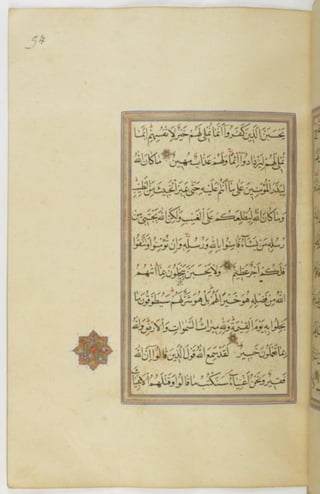 54
يحسبن الذين كفروا انما نملى لهم خير لانفسهم انما
نملى لهم ليزدادوا اثما ولهم عذاب مهين ما كان الله
ليذر المؤمنين على ما انتم عليه حتى يميز الخبيث من الطيب
وما كان الله ليطلعكم على الغيب ولكن الله يجتبى من
رسله من يشآء فامنوا بالله ورسله وان تؤمنوا وتتقوا
فلكم اجر عظيم ولا يحسبن الذين يبخلون بما اتيهم
الله من فضله هو خيرا لهم بل هو شر لهم سيطوقون ما
بخلوا به يوم القيمة ولله ميراث السموات والارض والله
بما تعملون خبير لقد سمع الله قول الذين قالوا ان الله
فقير ونحن اغنيآء سنكتب ما قالوا وقتلهم الانبيآء